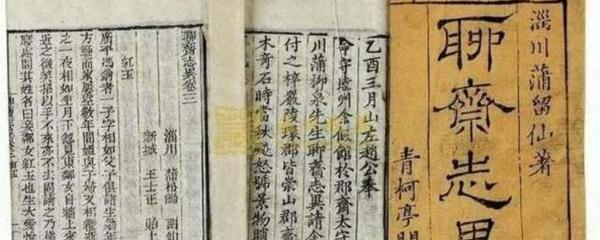 淄川蒲留仙著
聊齋志異
青柯亭開
乙酉三月山左趙公奉
命守睦州余假館於郡齋太守
川蒲柳泉先生聊齋志異請余
付之梓嚴陵環郡皆崇山郡齋
木奇石時當秋飈怒號景物
聊齋志異卷三
淄川 蒲松齡 留仙
新城 王士正 貽上
紅玉
廣平馮翁者一子字相如父子俱諸生翁年
方鯁而家屢空數年間媼與子婦又相繼
之一夜相如坐月下忽見東鄰女自牆上來
近之微笑招以手不來亦不去固請之乃
寢處問其姓名曰妾鄰女紅玉也生大愛悅